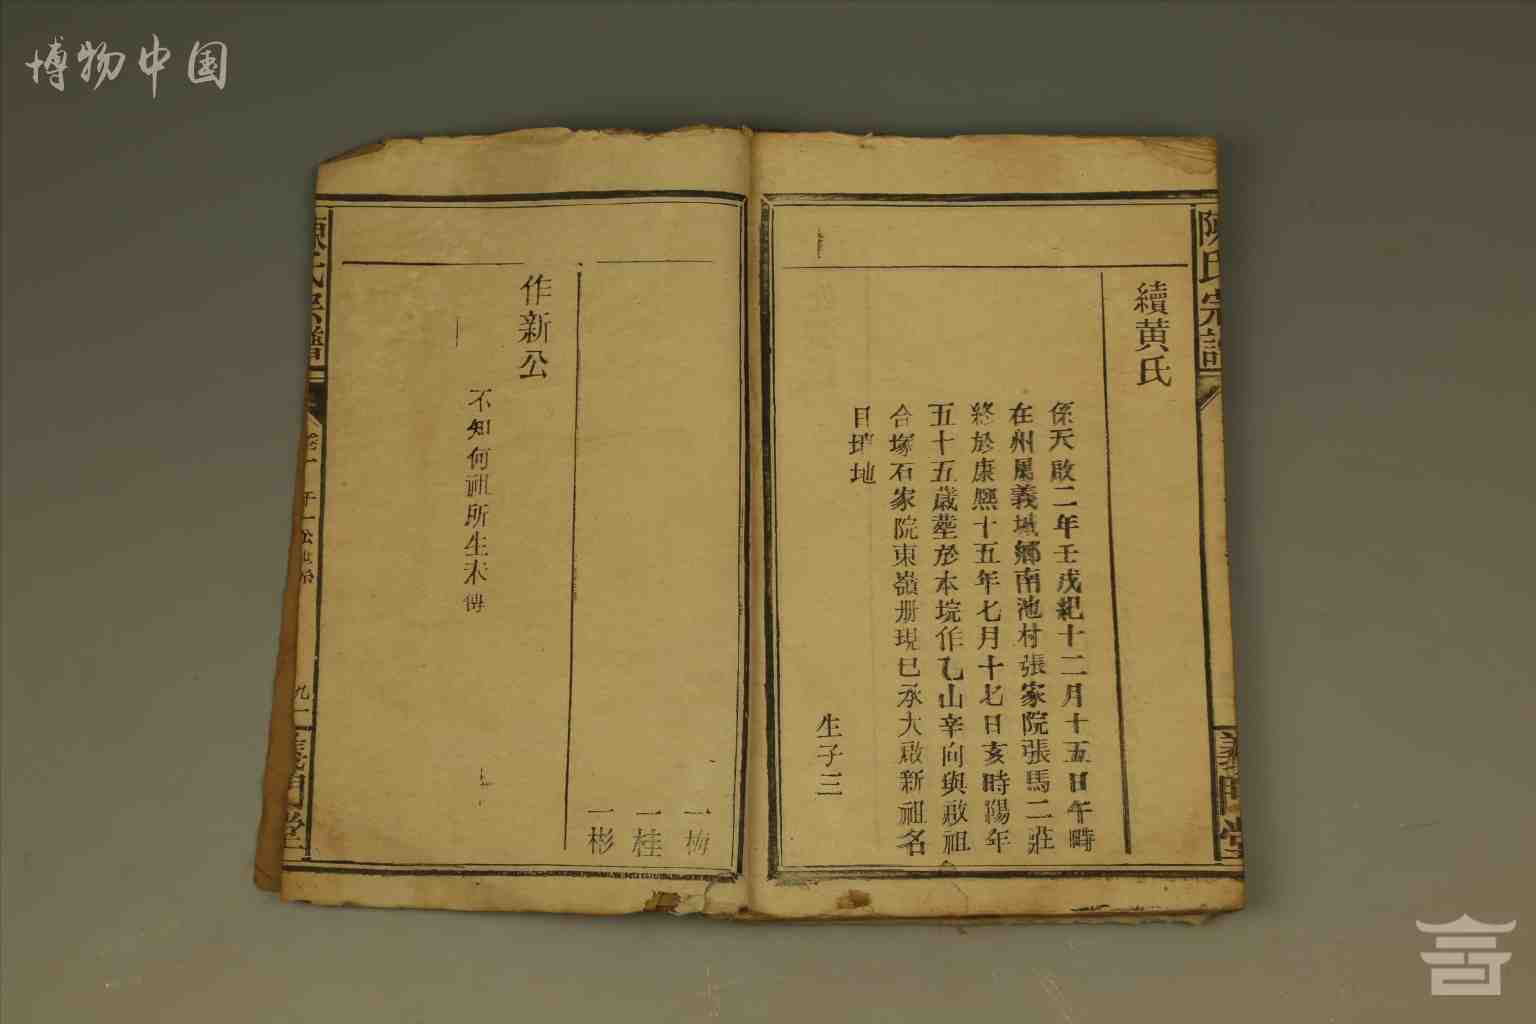 博物中国
陳氏宗譜
義門堂
續黄氏
係天啟二年壬戌𥿄十二月十五日午時
在州属義城鄉南池村張家院張馬二莊
終於康熙十五年七月十七日亥時陽年
五十五歲塟於本垸作乙山辛向與啟祖
合塚石家院東嶺册現已承大啟新祖名
目 地
生子三
一梅
一桂
一彬
作新公
不知何祖所生未傳
陳氏宗譜
九一
義門堂